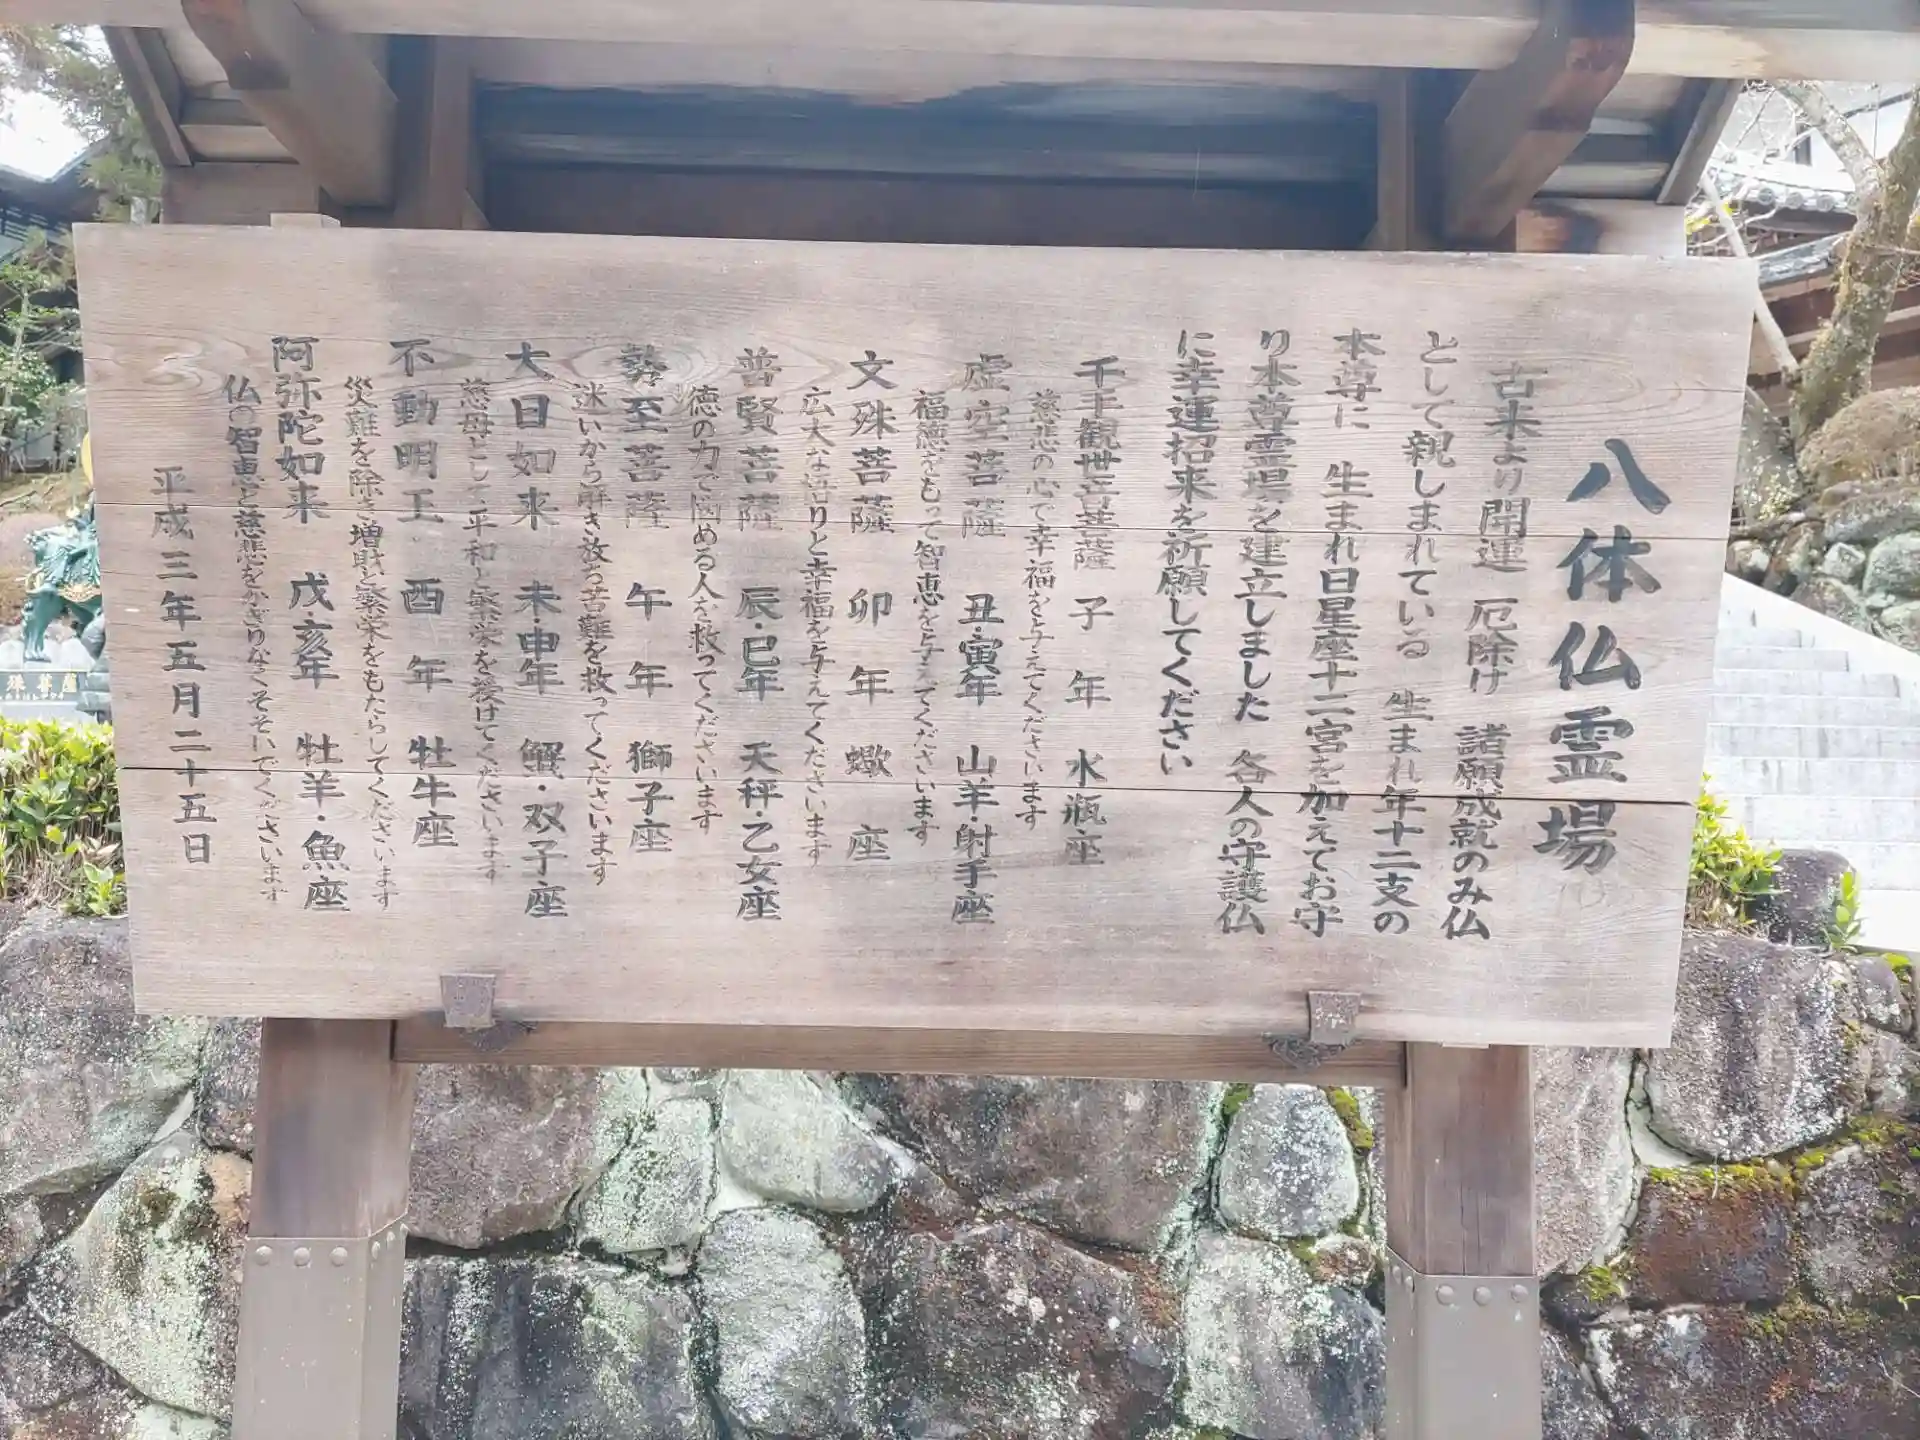 八体仏霊場
古来より開運 厄除け 諸願成就のみ仏
として親しまれている 生まれ年十二支の
本尊に 生まれ日星座十二宮を加えてお守
り本尊霊場を建立しました 各人の守護仏
に幸運招来を祈願してください
千手観世音菩薩 子年 水瓶座
慈悲の心で幸福を与えてくださいます
虚空菩薩 丑・寅年 山羊・射手座
福徳をもって智恵を与えてくださいます
文殊菩薩 卯年 蠍座
広大な悟りと幸福を与えてくださいます
普賢菩薩 辰・巳年 天秤・乙女座
徳の力で固める人を救ってくださいます
勢至菩薩 午年 獅子座
迷いから解き放ち苦難を救ってくださいます
大日如来 未・申年 蟹・双子座
慈母として平和と繁栄を授けてくださいます
不動明王 酉年 牡牛座
災難を除き増財と繁栄をもたらしてくださいます
阿弥陀如来 戌・亥年 牡羊・魚座
仏の智恵と慈悲をかぎりなくそそいでくださいます
平成三年五月二十五日